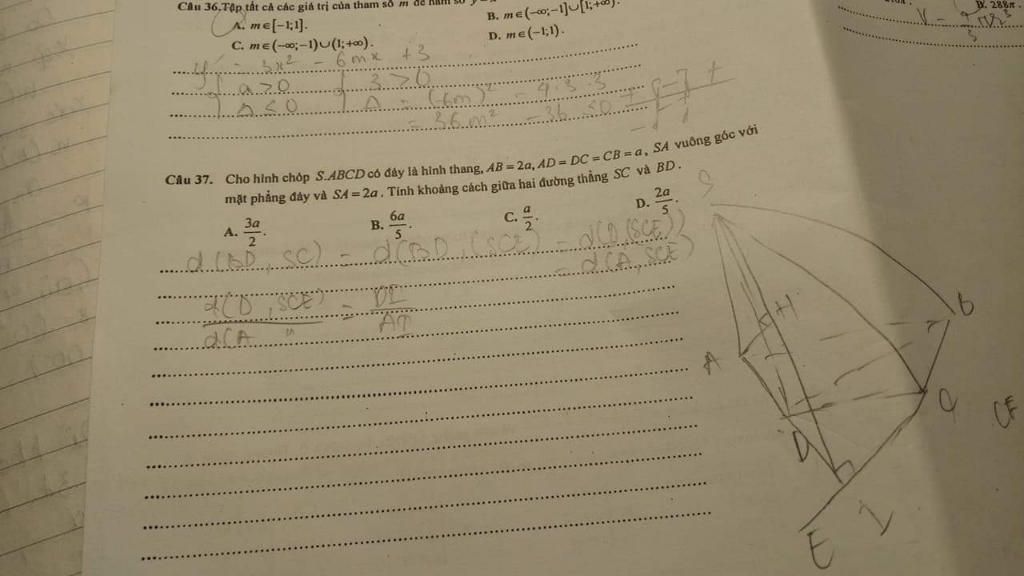 Câu 36. Tập tất cả các giá trị của tham số m để hàm số y =
A. m∈[-1;1].
B. m∈(-∞;-1]∪[1;+∞).
C. m∈(-∞;-1)∪(1;+∞).
D. m∈(-1;1).
y' = 3x² - 6mx + 3
a > 0
3 > 0
Δ ≤ 0
Δ = (-6m)² - 4.3.3
= 36m² - 36 ≤ 0
Câu 37. Cho hình chóp S.ABCD có đáy là hình thang, AB = 2a, AD = DC = CB = a, SA vuông góc với
mặt phẳng đáy và SA = 2a. Tính khoảng cách giữa hai đường thẳng SC và BD.
A. 3a/2.
B. 6a/5.
C. a/2.
D. 2a/5.
d(BD, SC) = d(BD, (SCE) = d(D(SCE))
= d(A, SCE)
d(D, SCE)
d(A "
S
H
B
A
C
D
E
I
D. 288π.